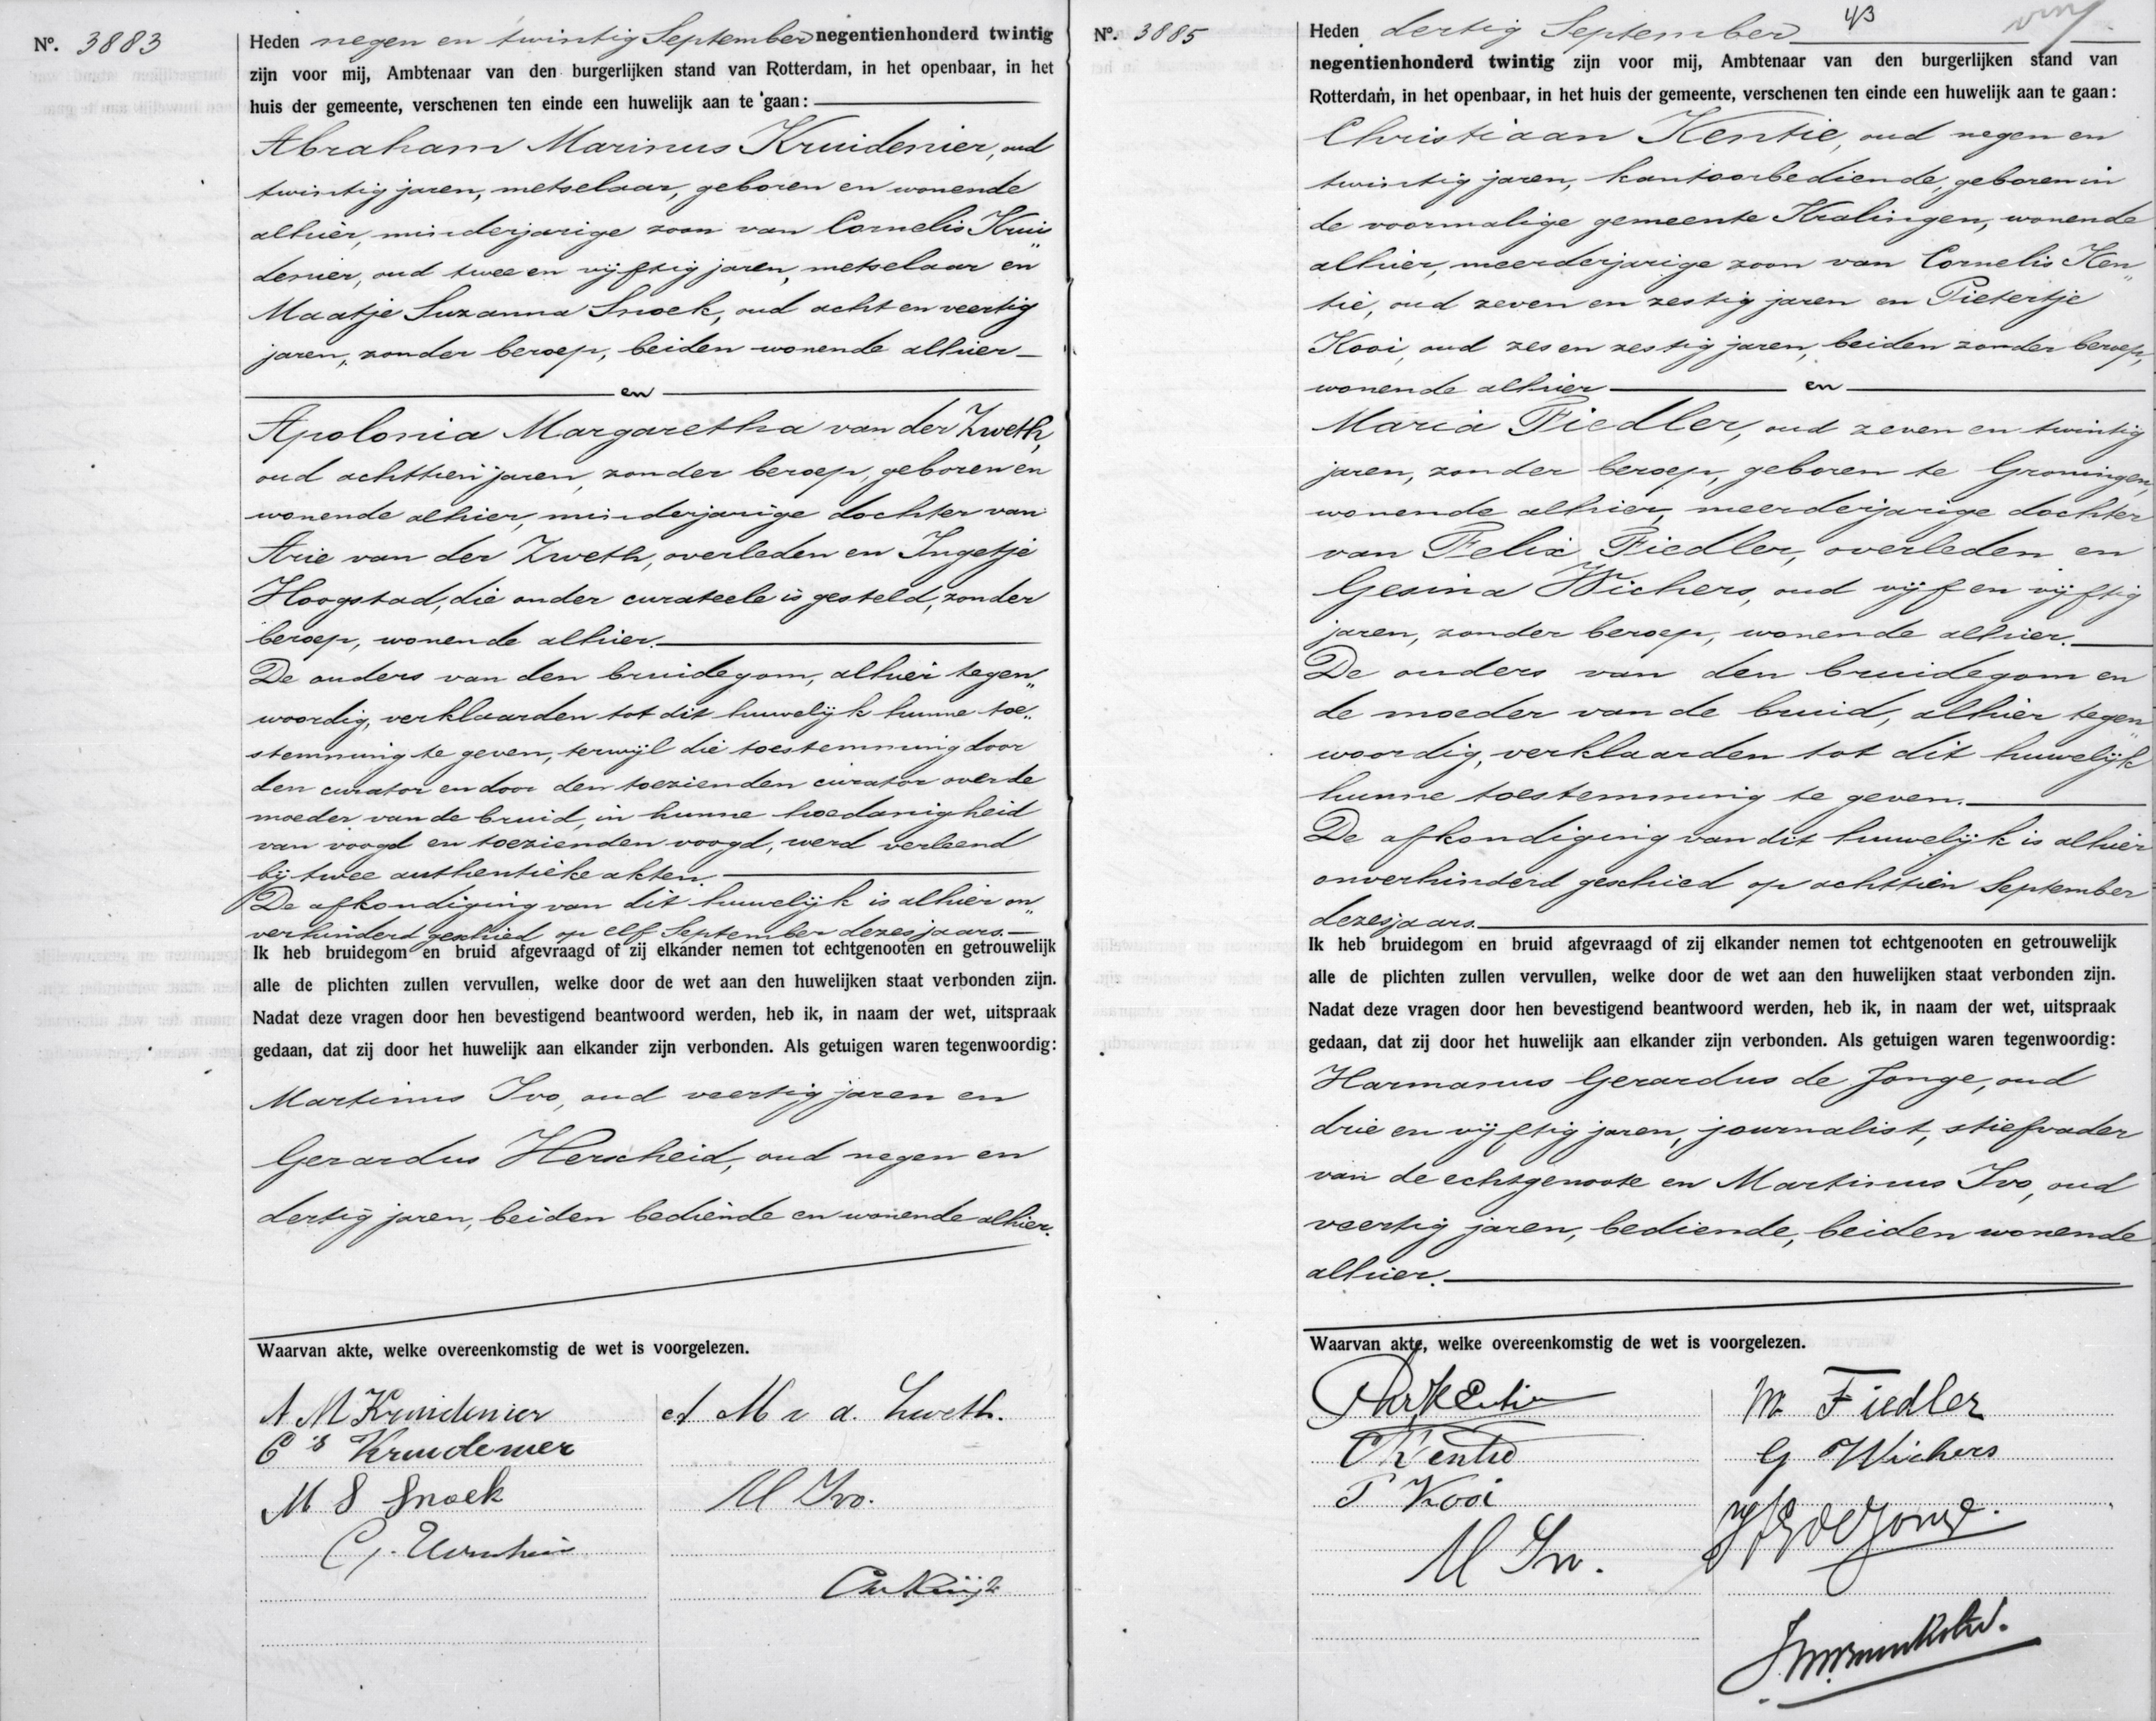 Nº. 3883
Heden negen en twintig September negentienhonderd twintig
zijn voor mij, Ambtenaar van den burgerlijken stand van Rotterdam, in het openbaar, in het
huis der gemeente, verschenen ten einde een huwelijk aan te gaan:
Abraham Marinus Kruidenier, oud
twintig jaren, metselaar, geboren en wonende
alhier, minderjarige zoon van Cornelis Krui„
denier, oud twee en vijftig jaren, metselaar en
Maatje Suzanna Snoek, oud acht en veertig
jaren, zonder beroep, beiden wonende alhier
en
Apolonia Margaretha van der Zweth,
oud achttien jaren, zonder beroep, geboren en
wonende alhier, minderjarige dochter van
Arie van der Zweth, overleden en Ingetje
Hoogstad, die onder curateele is gesteld, zonder
beroep, wonende alhier.
De ouders van den bruidegom, alhier tegen„
woordig, verklaarden tot dit huwelijk hunne toe„
stemming te geven, terwijl die toestemming door
den curator en door den toezienden curator over de
moeder van de bruid, in hunne hoedanigheid
van voogd en toezienden voogd, werd verleend
bij twee authentieke akten.
De afkondiging van dit huwelijk is alhier on„
verhinderd geschied op elf September dezes jaars.
Ik heb bruidegom en bruid afgevraagd of zij elkander nemen tot echtgenooten en getrouwelijk
alle de plichten zullen vervullen, welke door de wet aan den huwelijken staat verbonden zijn.
Nadat deze vragen door hen bevestigend beantwoord werden, heb ik, in naam der wet, uitspraak
gedaan, dat zij door het huwelijk aan elkander zijn verbonden. Als getuigen waren tegenwoordig:
Martinus Ivo, oud veertig jaren en
Gerardus Herscheid, oud negen en
dertig jaren, beiden bediende en wonende alhier.
Waarvan akte, welke overeenkomstig de wet is voorgelezen.
A M Kruidenier
A M v d. Zweth.
Cs Kruidenier
M S Snoek
M Ivo.
Nº. 3885
Heden dertig September
negentienhonderd twintig zijn voor mij, Ambtenaar van den burgerlijken stand van
Rotterdam, in het openbaar, in het huis der gemeente, verschenen ten einde een huwelijk aan te gaan:
Christiaan Kentie, oud negen en
twintig jaren, kantoorbediende, geboren in
de voormalige gemeente Kralingen, wonende
alhier, meerderjarige zoon van Cornelis Ken„
tie, oud zeven en zestig jaren en Pietertje
Kooi, oud zes en zestig jaren, beiden zonder beroep,
wonende alhier en
Maria Fiedler, oud zeven en twintig
jaren, zonder beroep, geboren te Groningen,
wonende alhier, meerderjarige dochter
van Felix Fiedler, overleden en
Gesina Wichers, oud vijf en vijftig
jaren, zonder beroep, wonende alhier.
De ouders van den bruidegom en
de moeder van de bruid, alhier tegen„
woordig, verklaarden tot dit huwelijk
hunne toestemming te geven.
De afkondiging van dit huwelijk is alhier
onverhinderd geschied op achttien September
dezes jaars.
Ik heb bruidegom en bruid afgevraagd of zij elkander nemen tot echtgenooten en getrouwelijk
alle de plichten zullen vervullen, welke door de wet aan den huwelijken staat verbonden zijn.
Nadat deze vragen door hen bevestigend beantwoord werden, heb ik, in naam der wet, uitspraak
gedaan, dat zij door het huwelijk aan elkander zijn verbonden. Als getuigen waren tegenwoordig:
Harmanus Gerardus de Jonge, oud
drie en vijftig jaren, journalist, stiefvader
van de echtgenoote en Martinus Ivo, oud
veertig jaren, bediende, beiden wonende
alhier.
Waarvan akte, welke overeenkomstig de wet is voorgelezen.
Chr Kentie
M Fiedler
C Kentie
G Wichers
P Kooi
HG de Jonge.
M Ivo.